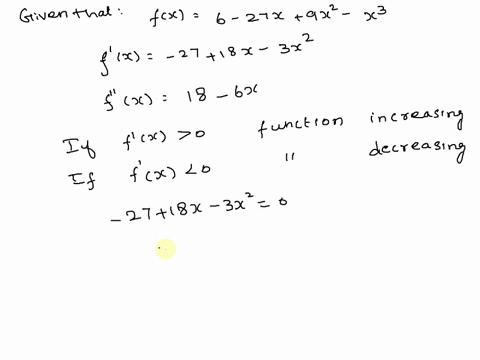 Given that: f(x) = 6 - 27x + 9x² - x³
f'(x) = -27 + 18x - 3x²
f''(x) = 18 - 6x
If f'(x) > 0 function increasing
If f'(x) < 0 " decreasing
-27 + 18x - 3x² = 0